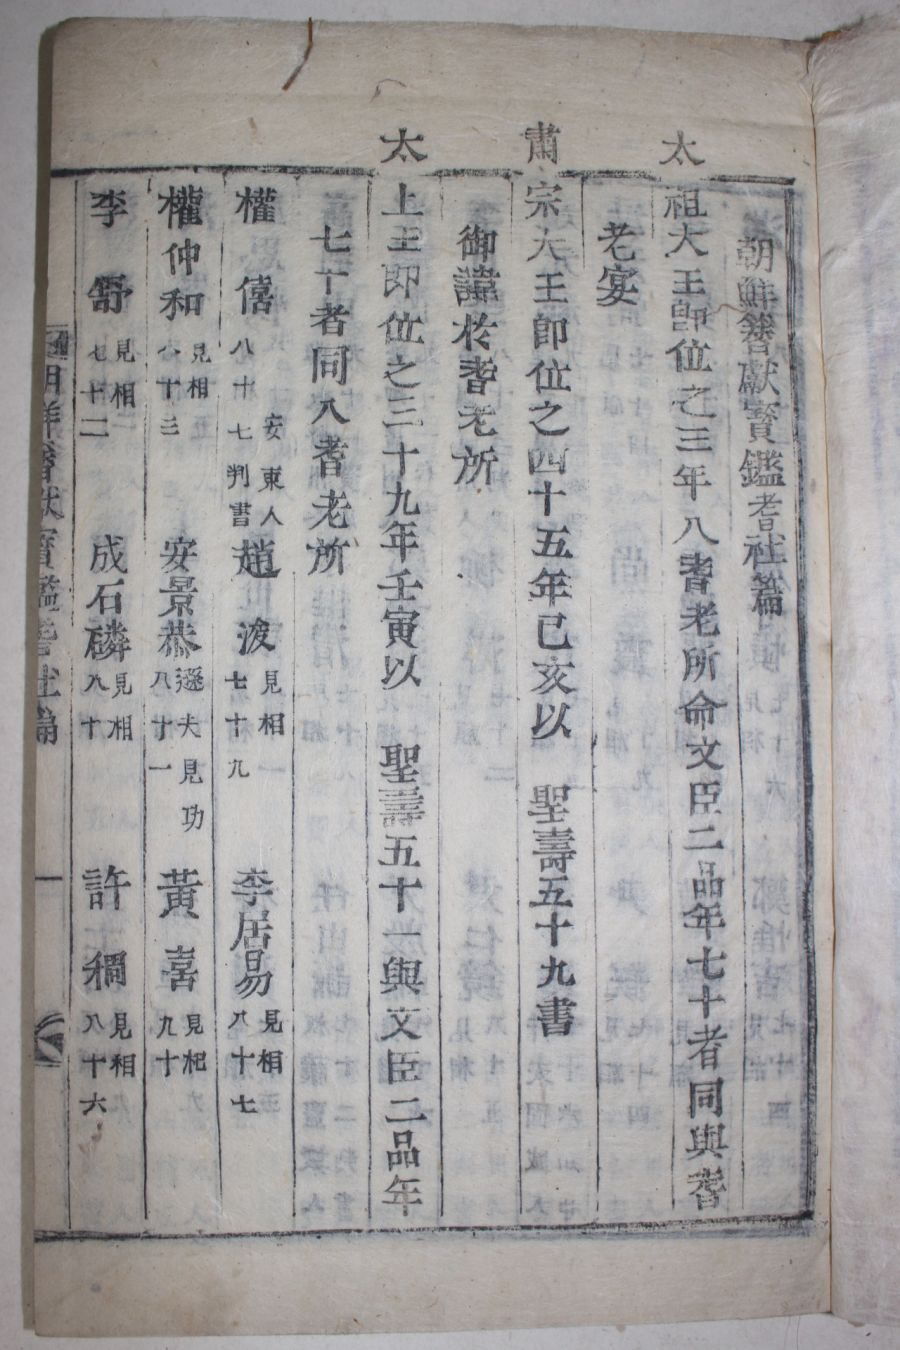 朝鮮簪獻寶鑑耆社篇
太祖大王卽位之三年入耆老所命文臣二品年七十者同與耆
老宴
肅宗大王卽位之四十五年己亥以 聖壽五十九書
御諱於耆老所
太上王卽位之三十九年壬寅以 聖壽五十一與文臣二品年
七十者同入耆老所
權僖 安東人八十七判書 趙浚 見相七十九 李居易 見相八十七
權仲和 見相八十三 安景恭 遜夫見功八十一 黃喜 見相九十
李舒 見相七十二 成石磷 見相八十 許稠 見相八十六
朝鮮簪獻寶鑑耆社篇 一